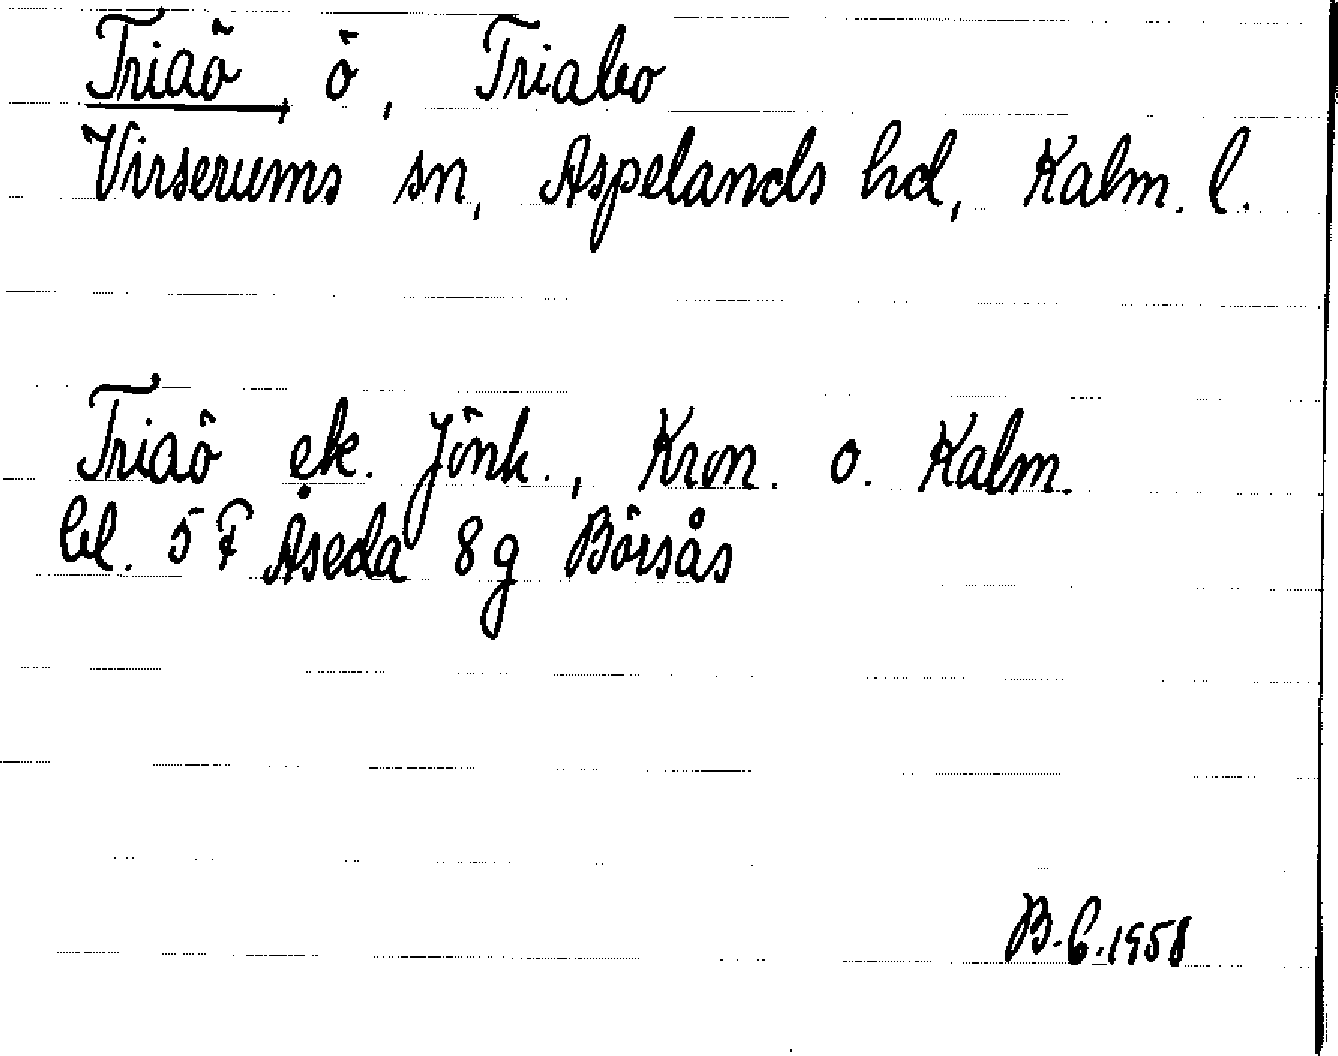 Triaö, ö, Triabo
Virserums sn, Aspelands hd, Kalm. l.
Triaö ek. Jönk., Kron. o. Kalm.
bl. 5 F Åseda 8g Börsås
B.C.1958